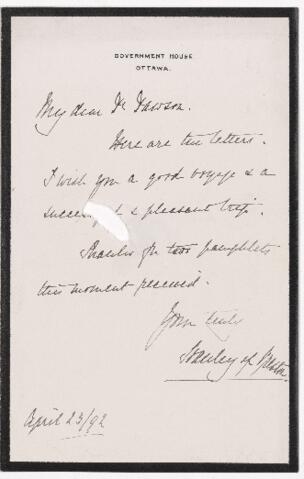 GOVERNMENT HOUSE
OTTAWA.
My dear Dr Dawson.
Here are the letters.
I wish you a good voyage & a
succes & pleasant trip.
Thanks for two pamphlets
this moment received.
Yours truly
Stanley of Preston.
April 23/92